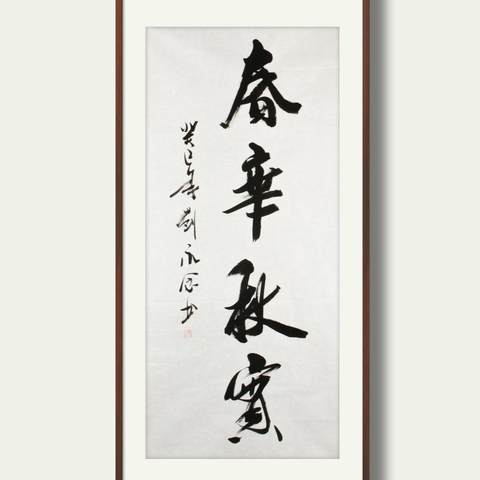 春華秋實
癸巳年劉永金书